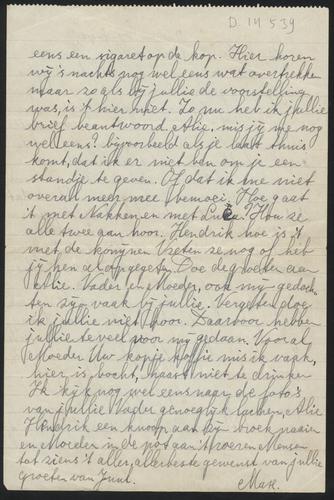 D. 14539
eens een sigaret op de kop. Hier horen
wij 's nachts nog wel eens wat overtrekken
maar zo als bij jullie de voorstelling
was, is 't hier niet. Zo nu heb ik jullie
brief beantwoord. Alie, mis jij me nog
wel eens? bijvoorbeeld als je laat thuis
komt, dat ik er niet ben om je een
standje te geven. Of dat ik me niet
overal meer mee bemoei. Hoe gaat
't met Nakken, en met Hou ze
alle twee aan hoor. Hendrik hoe is 't
met de konijnen Vreten ze nog of heb
jij hen al opgegeten. Doe de groeten aan
Vader en Moeder, ook mijn gedach-
ten zijn vaak bij jullie. Vergeten doe
ik jullie niet hoor. Daarvoor hebben
jullie te veel voor mij gedaan. Vooral
Moeder Uw kopje koffie mis ik vaak,
hier is 't bocht, haast niet te drinken
Ik kijk nog wel eens naar de foto's
van jullie Vader genoegelijk lachen, Alie
Hendrik een knoop aan zij broek naaien
en Moeder in de pot aan 't roeren Mensen
tot ziens 't aller, allerbeste gewenst van jullie
Groeten van Juul.
Max.